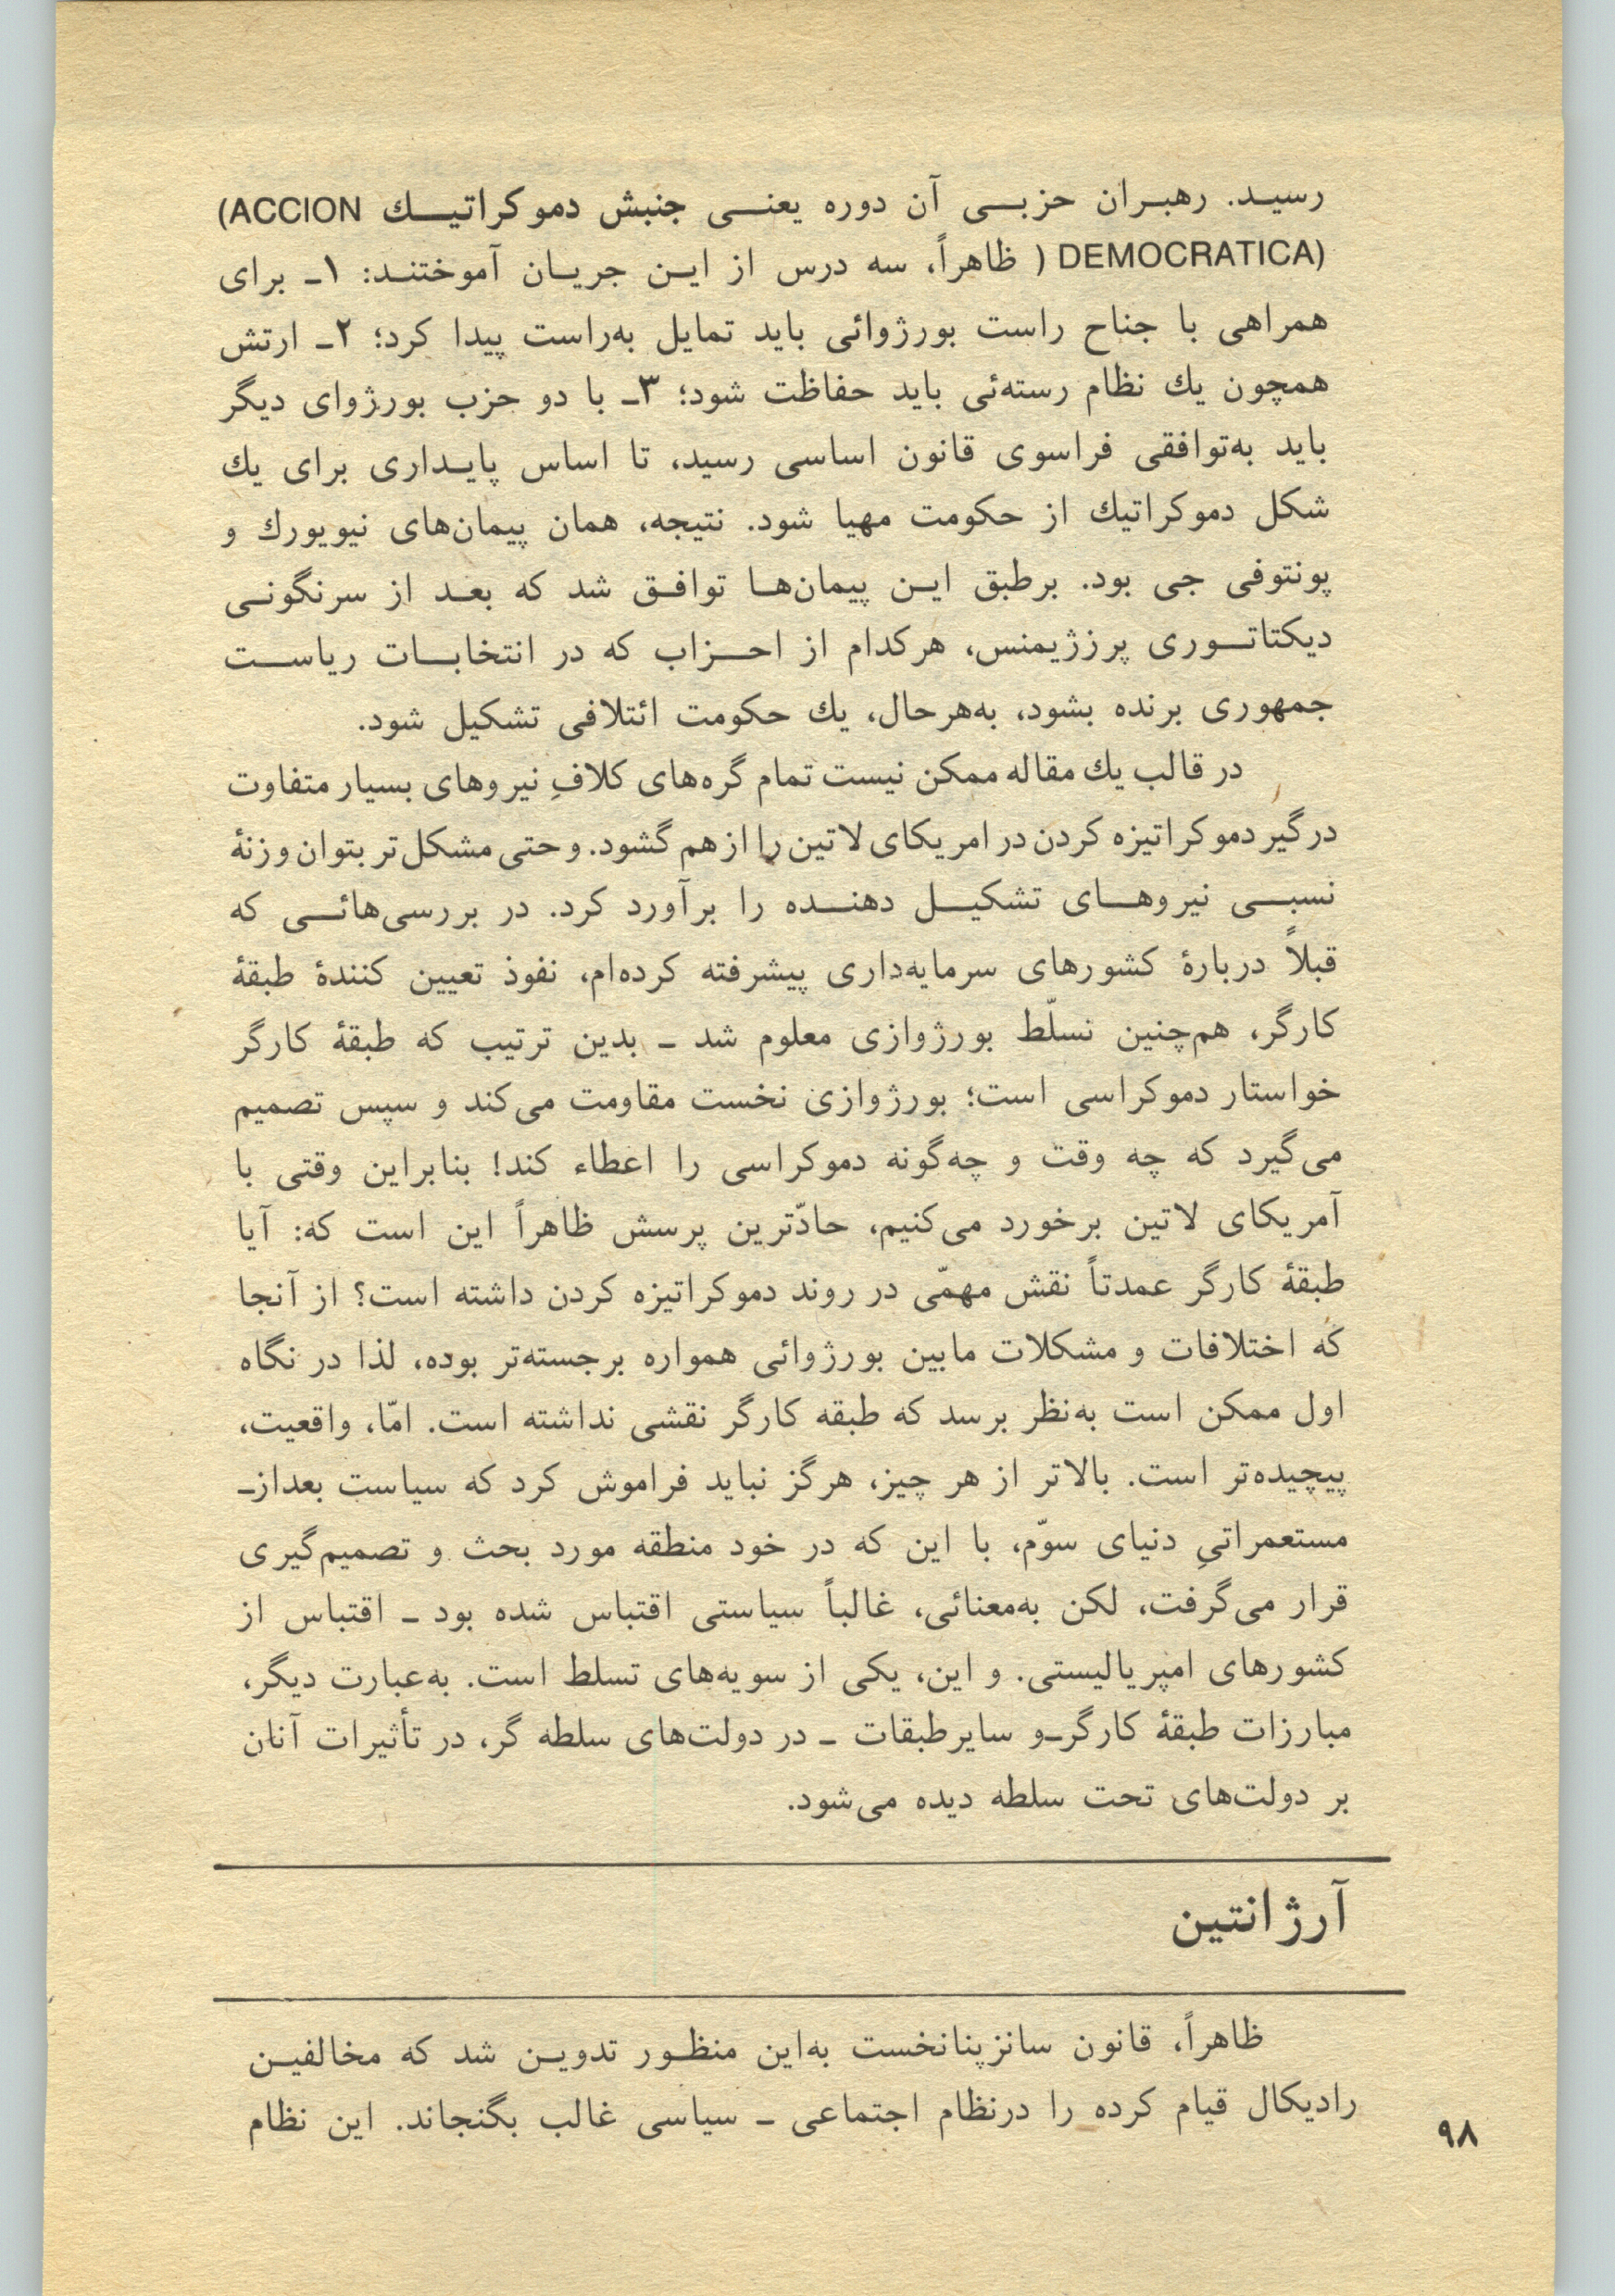 رسید. رهبران حزبی آن دوره یعنی جنبش دموکراتیك (ACCION
DEMOCRATICA) ( ظاهراً، سه درس از این جریان آموختند: ۱ـ برای
همراهی با جناح راست بورژوائی باید تمایل به‌راست پیدا کرد؛ ۲ـ ارتش
همچون یك نظام رسته‌ئی باید حفاظت شود؛ ۳ـ با دو حزب بورژوای دیگر
باید به‌توافقی فراسوی قانون اساسی رسید، تا اساس پایداری برای یك
شکل دموکراتیك از حکومت مهیا شود. نتیجه، همان پیمان‌های نیویورك و
پونتوفی جی بود. برطبق این پیمان‌ها توافق شد که بعد از سرنگونی
دیکتاتوری پرزژیمنس، هرکدام از احزاب که در انتخابات ریاست
جمهوری برنده بشود، به‌هرحال، یك حکومت ائتلافی تشکیل شود.
در قالب یك مقاله ممکن نیست تمام گره‌های کلافِ نیروهای بسیار متفاوت
درگیر دموکراتیزه کردن در امریکای لاتین را از هم گشود. و حتی مشکل‌تر بتوان وزنهٔ
نسبی نیروهای تشکیل دهنده را برآورد کرد. در بررسی‌هائی که
قبلاً دربارهٔ کشورهای سرمایه‌داری پیشرفته کرده‌ام، نفوذ تعیین کنندهٔ طبقهٔ
کارگر، هم‌چنین نسلّط بورژوازی معلوم شد ـ بدین ترتیب که طبقهٔ کارگر
خواستار دموکراسی است؛ بورژوازی نخست مقاومت می‌کند و سپس تصمیم
می‌گیرد که چه وقت و چه‌گونه دموکراسی را اعطاء کند! بنابراین وقتی با
آمریکای لاتین برخورد می‌کنیم، حادّترین پرسش ظاهراً این است که: آیا
طبقهٔ کارگر عمدتاً نقش مهمّی در روند دموکراتیزه کردن داشته است؟ از آنجا
که اختلافات و مشکلات مابین بورژوائی همواره برجسته‌تر بوده، لذا در نگاه
اول ممکن است به‌نظر برسد که طبقه کارگر نقشی نداشته است. امّا، واقعیت،
پیچیده‌تر است. بالاتر از هر چیز، هرگز نباید فراموش کرد که سیاست بعدازـ
مستعمراتیِ دنیای سوّم، با این که در خود منطقه مورد بحث و تصمیم‌گیری
قرار می‌گرفت، لکن به‌معنائی، غالباً سیاستی اقتباس شده بود ـ اقتباس از
کشورهای امپریالیستی. و این، یکی از سویه‌های تسلط است. به‌عبارت دیگر،
مبارزات طبقهٔ کارگرـو سایرطبقات ـ در دولت‌های سلطه گر، در تأثیرات آنان
بر دولت‌های تحت سلطه دیده می‌شود.
آرژانتین
ظاهراً، قانون سانزپنانخست به‌این منظور تدوین شد که مخالفین
رادیکال قیام کرده را درنظام اجتماعی ـ سیاسی غالب بگنجاند. این نظام
۹۸